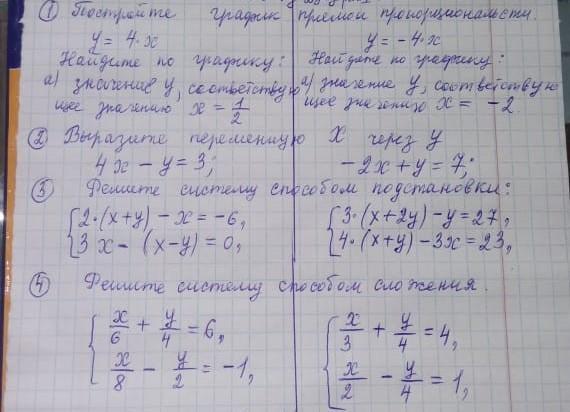 ① Постройте график прямой пропорциональности.
y = 4·x y = -4·x
Найдите по графику: Найдите по графику:
а) значение y, соответствую а) значение y, соответствую
щее значению x = 1/2 щее значению x = -2.
② Выразите переменную X через y
4x - y = 3; -2x + y = 7;
③ Решите систему способом подстановки:
{2·(x+y) - x = -6, {3·(x+2y) - y = 27,
{3x - (x-y) = 0, {4·(x+y) - 3x = 23,
④ Решите систему способом сложения.
{x/6 + y/4 = 6, {x/3 + y/4 = 4,
{x/8 - y/2 = -1, {x/2 - y/4 = 1,